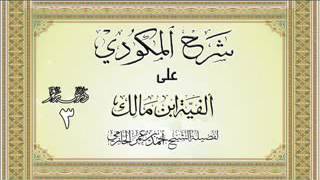 شرح المكودي
على
ألفية ابن مالك
لفضيلة الشيخ محمد بن عمر الحازمي
٣